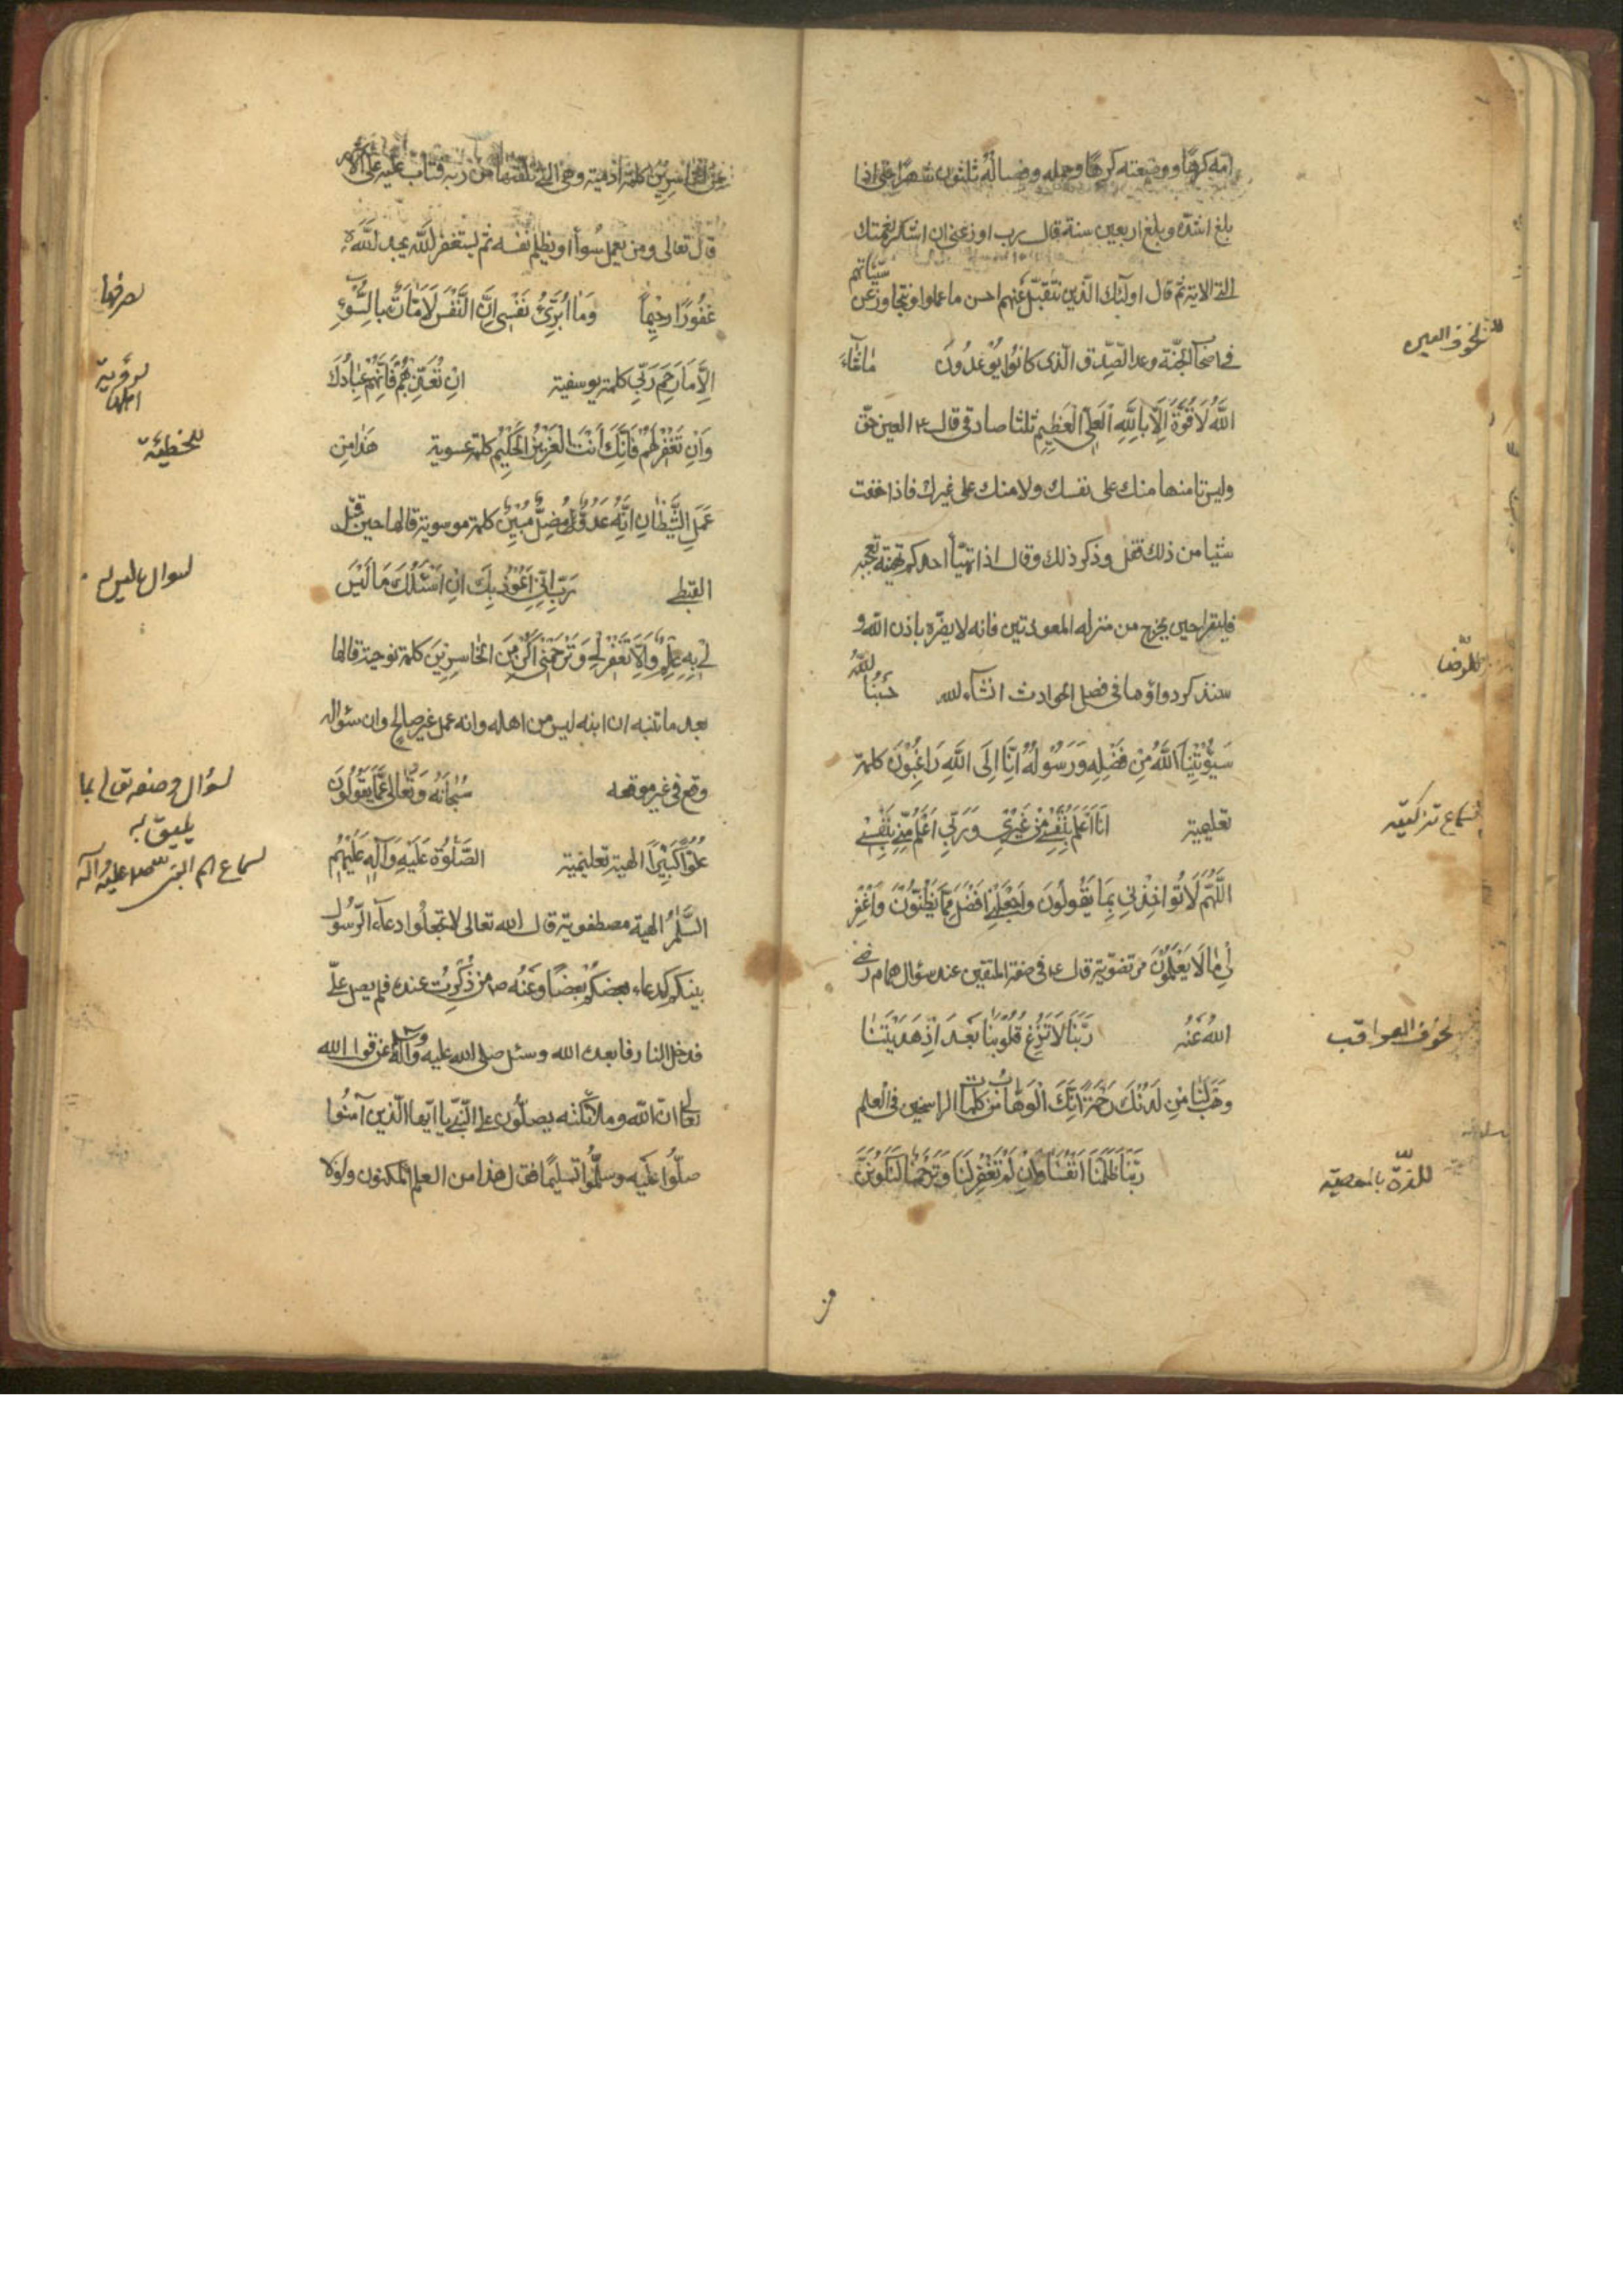 امه كرها ووضعته كرها وحمله وفصاله ثلثون شهرا حتى اذا
بلغ اشده وبلغ اربعين سنة قال رب اوزعنى ان اشكر نعمتك
الى الاية ثم قال اولئك الذين نتقبل عنهم احسن ما عملوا ونتجاوز عن سيئاتهم
فى اصحاب الجنة وعد الصدق الذى كانوا يوعدون ماشاء
لخوف العين
الله لَا قُوَّةَ اِلَّا بِاللَّهِ الْعَلِىِّ الْعَظِيمِ ثلثا صادقى قال ع العين حق
وليس تامنها منك على نفسك ولا منك على غيرك فاذا خفت
شيئا من ذلك فقل وذكر ذلك وقال اذا تهيأ احدكم تهيئة تعجبه
فليقرا حين يخرج من منزله المعوذتين فانه لا يضره باذن الله و
سنذكر دواؤها فى فصل الحوادث انشاء لله حَسْبُنَا اللَّهُ
للرضا
سَيُؤْتِينَا اللَّهُ مِنْ فَضْلِهِ وَرَسُولُهُ اِنَّا اِلَى اللَّهِ رَاغِبُونَ كلمة
تعليمية اَنَا اَعْلَمُ بِنَفْسِى مِنْ غَيْرِى وَرَبِّى اَعْلَمُ مِنِّى بِنَفْسِى
لسماع تزكيته
اللَّهُمَّ لَا تُؤَاخِذْنِى بِمَا يَقُولُونَ وَاجْعَلْنِى اَفْضَلَ مِمَّا يَظُنُّونَ وَاغْفِرْ
لِى مَا لَا يَعْلَمُونَ مرتضوية قال ع فى صفة المتقين عند سؤال همام رضى
الله عَنْهُ رَبَّنَا لَا تُزِغْ قُلُوبَنَا بَعْدَ اِذْ هَدَيْتَنَا
لخوف العواقب
وَهَبْ لَنَا مِنْ لَدُنْكَ رَحْمَةً اِنَّكَ اَنْتَ الْوَهَّابُ من كلمات الراسخين فى العلم
رَبَّنَا ظَلَمْنَا اَنْفُسَنَا وَاِنْ لَمْ تَغْفِرْ لَنَا وَتَرْحَمْنَا لَنَكُونَنَّ
بالمعصية
من
مِنَ الْخَاسِرِينَ كلمة ادمية وهى التى تلقيها من ربه فتاب عليه
قال تعالى ومن يعمل سوأ او يظلم نفسه ثم يستغفر لله يجد الله
غَفُورًا رَحِيمًا وَمَا اُبَرِّئُ نَفْسِى اِنَّ النَّفْسَ لَاَمَّارَةٌ بِالسُّوءِ
اِلَّا مَا رَحِمَ رَبِّى كلمة يوسفية اِنْ تُعَذِّبْهُمْ فَاِنَّهُمْ عِبَادُكَ
لرؤية اهلها
وَاِنْ تَغْفِرْ لَهُمْ فَاِنَّكَ اَنْتَ الْعَزِيزُ الْحَكِيمُ كلمة عيسوية هَذَا مِنْ
للخطيئة
عَمَلِ الشَّيْطَانِ اِنَّهُ عَدُوٌّ مُضِلٌّ مُبِينٌ كلمة موسوية قالها حين قتل
القبطى رَبِّ اِنِّى اَعُوذُ بِكَ اَنْ اَسْئَلَكَ مَا لَيْسَ
لسوال ما ليس له
لِى بِهِ عِلْمٌ وَاِلَّا تَغْفِرْ لِى وَتَرْحَمْنِى اَكُنْ مِنَ الْخَاسِرِينَ كلمة نوحية قالها
بعد ما تنبه ان ابنه ليس من اهله وانه عمل غير صالح وان سئواله
وقع فى غير موقعه سُبْحَانَهُ وَتَعَالَى عَمَّا يَقُولُونَ
يليق به
عُلُوًّا كَبِيرًا الهية تعليمية الصَّلٰوةُ عَلَيْهِ وَآلِهِ عَلَيْهِمُ
لسماع اسم النبى صلى الله عليه وآله
السَّلَامُ الهية مصطفوية قال الله تعالى لا تجعلوا دعاء الرسول
بينكم كدعاء بعضكم بعضا وعنه ص من ذكرت عنده فلم يصل على
فدخل النار فابعده الله وسئل صلى الله عليه وآله عن قول الله
تعالى ان الله وملائكته يصلون على النبى يا ايها الذين آمنوا
صلوا عليه وسلموا تسليما فقال هذا من العلم المكنون ولولا